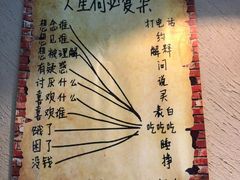 人生何必复杂
想念谁 打电话
想见谁 约
想被理解 解释
有疑惑 问
讨厌什么 说
喜欢什么 买
喜欢谁 表白
饿了 吃吃吃
困了 睡
没钱 挣